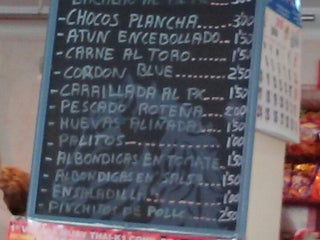 - CHOCOS PLANCHA... 300
- ATUN ENCEBOLLADO.. 150
- CARNE AL TORO... 150
- CORDON BLUE... 250
- CARRILLADA AL PX... 150
- PESCADO ROTEÑA... 200
- HUEVAS ALIÑADA... 150
- PALITOS... 100
- ALBONDICAS EN TOMATE. 150
- ALBONDICAS EN SALSA. 150
ENSALADILLA... 100
PINCHITOS DE POLLO... 250